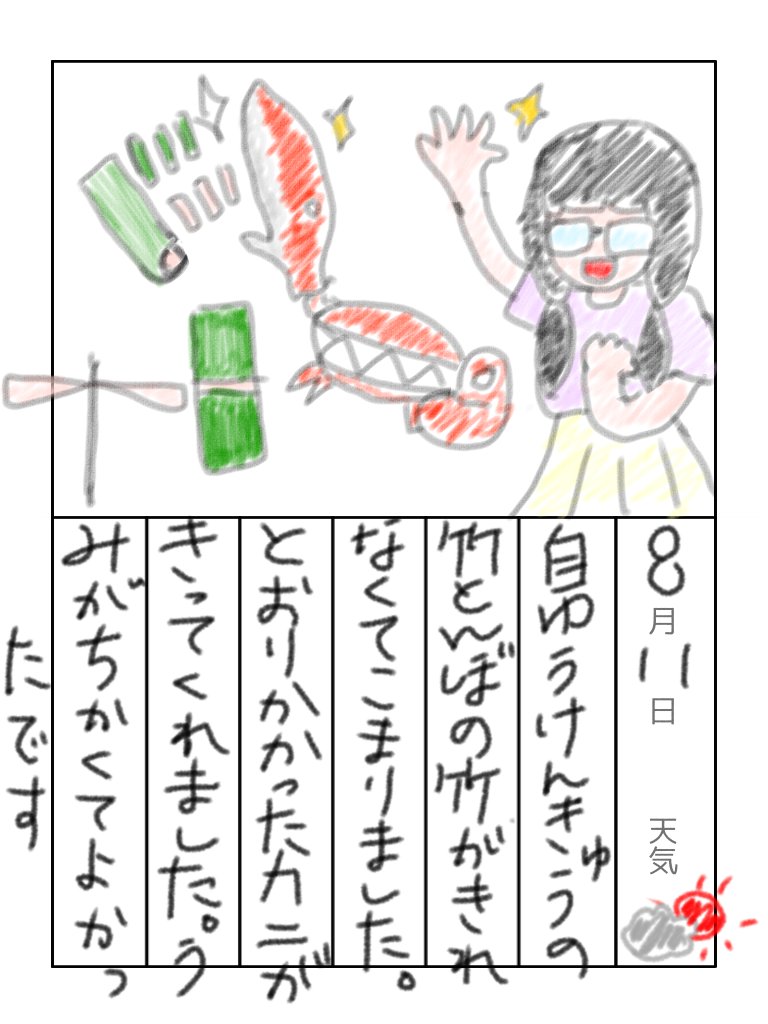 8月11日 天気
自ゆうけんきゅうの
竹とんぼの竹がきれ
なくてこまりました。
とおりかかったカニが
きってくれました。う
みがちかくてよかっ
たです